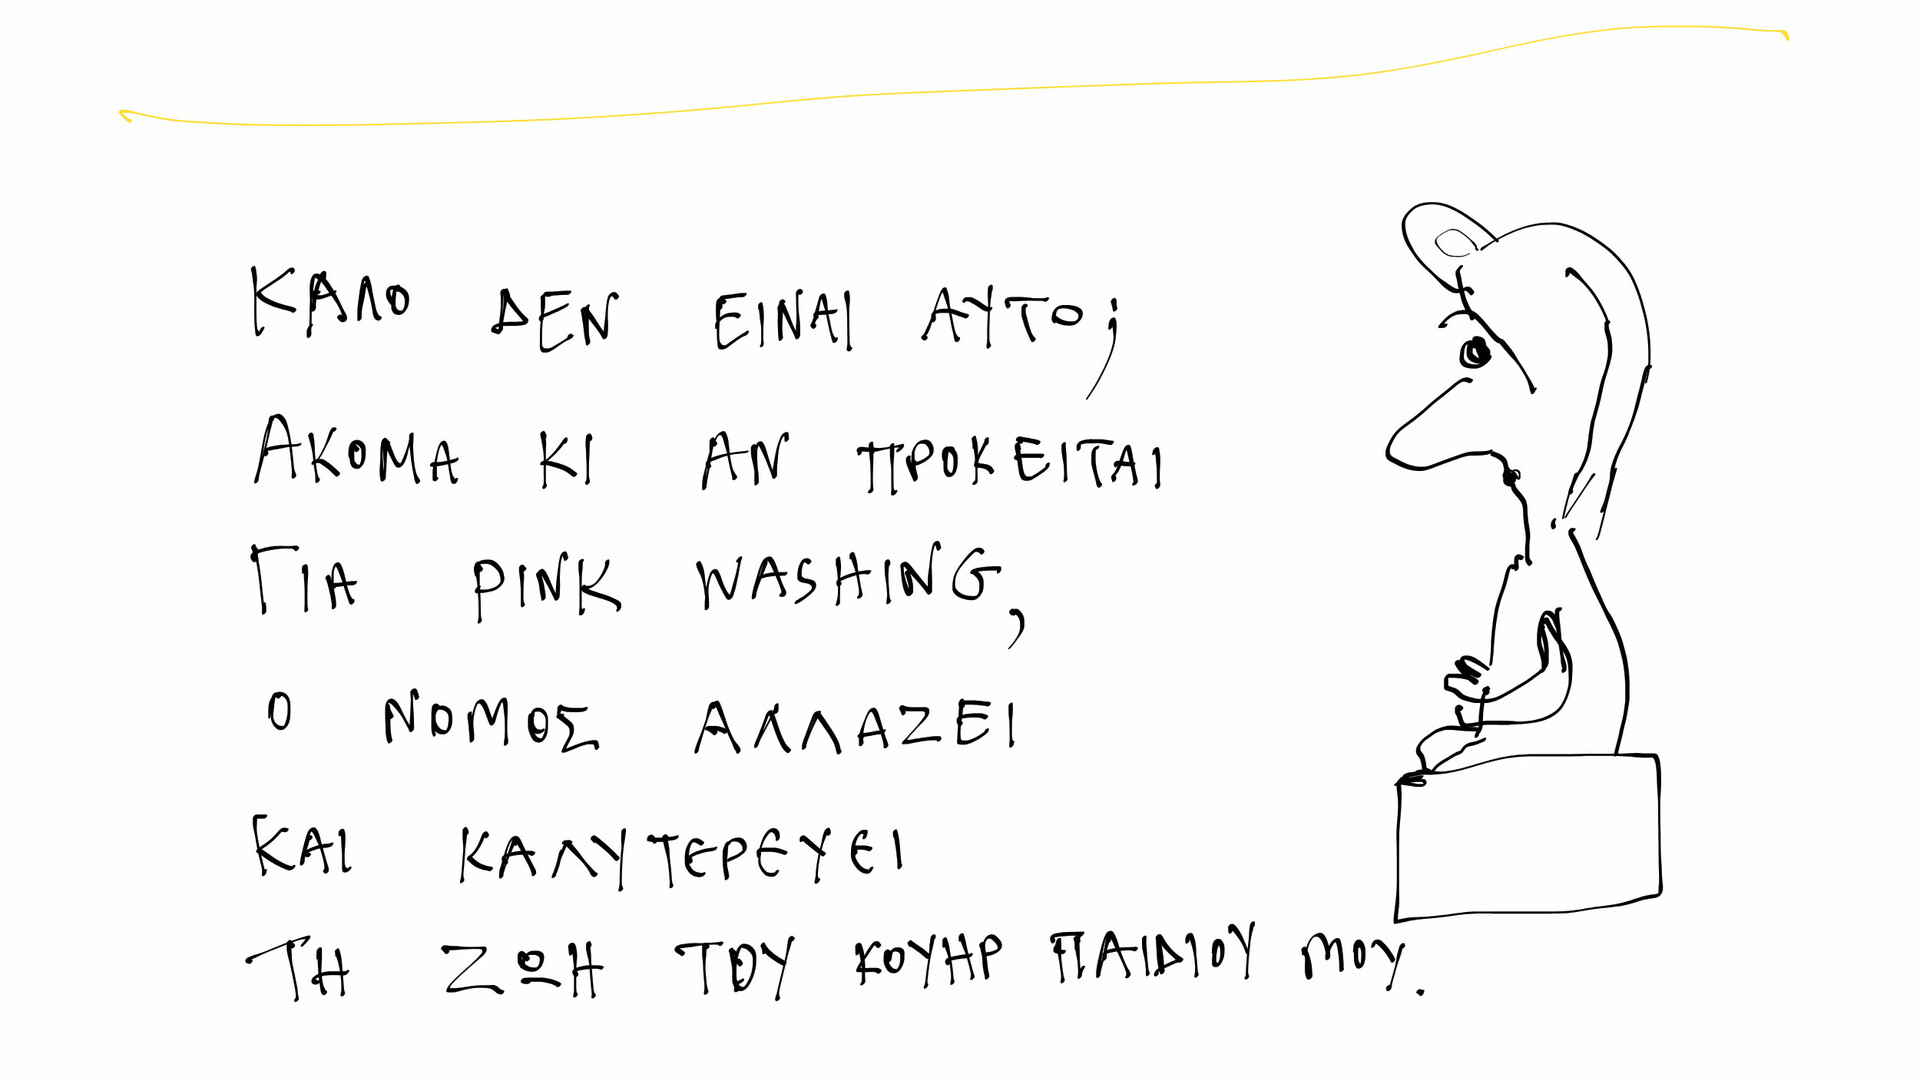 ΚΑΛΟ ΔΕΝ ΕΙΝΑΙ ΑΥΤΟ;
ΑΚΟΜΑ ΚΙ ΑΝ ΠΡΟΚΕΙΤΑΙ
ΓΙΑ PINK WASHING,
Ο ΝΟΜΟΣ ΑΛΛΑΖΕΙ
ΚΑΙ ΚΑΛΥΤΕΡΕΥΕΙ
ΤΗ ΖΩΗ ΤΟΥ ΚΟΥΗΡ ΠΑΙΔΙΟΥ ΜΟΥ.